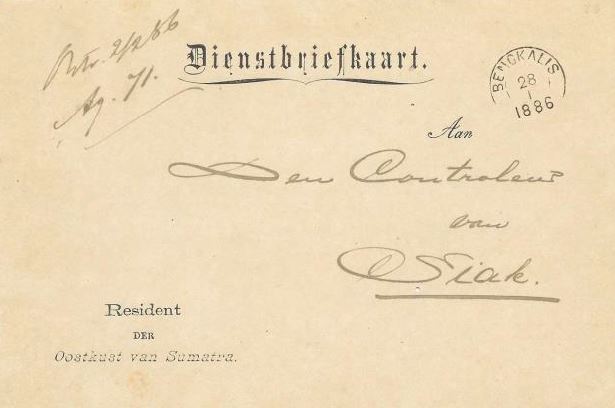 Dienstbriefkaart.
2/2 86
Ag. 71.
BENGKALIS
28
1
1886
Aan
Den Controleur
van
Siak.
Resident
DER
Oostkust van Sumatra.